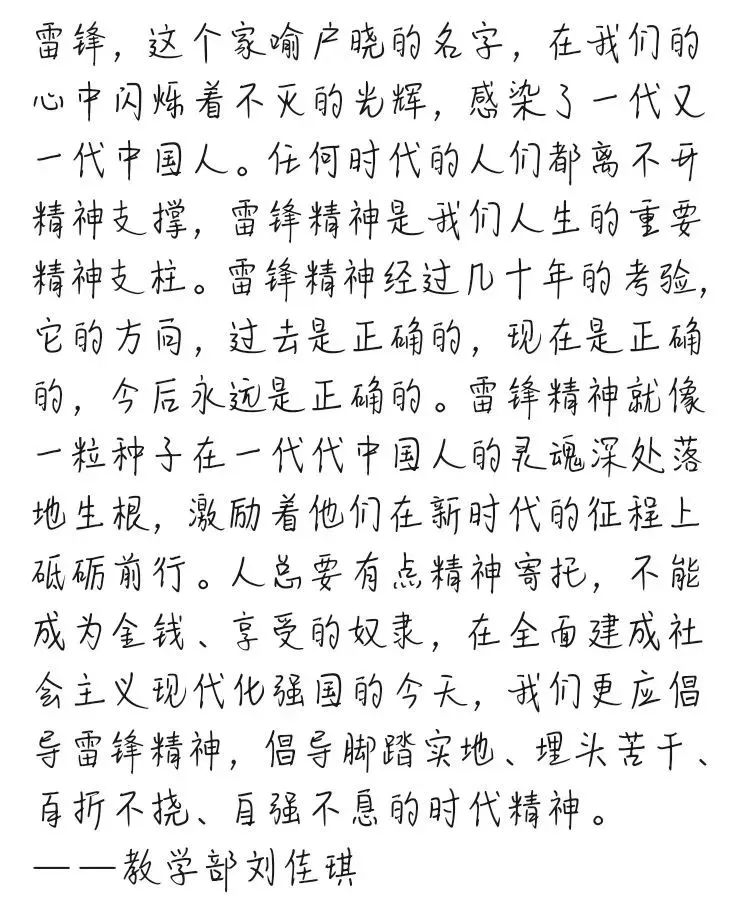 雷锋，这个家喻户晓的名字，在我们的
心中闪烁着不灭的光辉，感染了一代又
一代中国人。任何时代的人们都离不开
精神支撑，雷锋精神是我们人生的重要
精神支柱。雷锋精神经过几十年的考验，
它的方向，过去是正确的，现在是正确
的，今后永远是正确的。雷锋精神就像
一粒种子在一代代中国人的灵魂深处落
地生根，激励着他们在新时代的征程上
砥砺前行。人总要有点精神寄托，不能
成为金钱、享受的奴隶，在全面建成社
会主义现代化强国的今天，我们更应倡
导雷锋精神，倡导脚踏实地、埋头苦干、
百折不挠、自强不息的时代精神。
——教学部刘佳琪